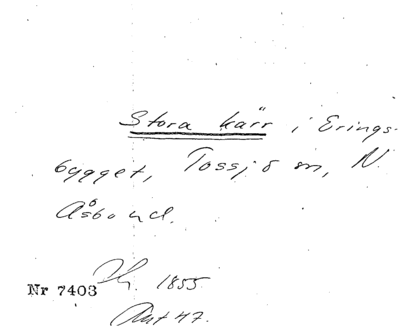 Stora kärr i Erings-
bygget, Tossjö sn, N.
Åsbo hd.
Nr 7403
1855